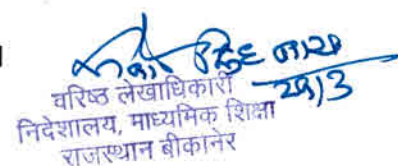 29/3
वरिष्ठ लेखाधिकारी
निदेशालय, माध्यमिक शिक्षा
राजस्थान बीकानेर